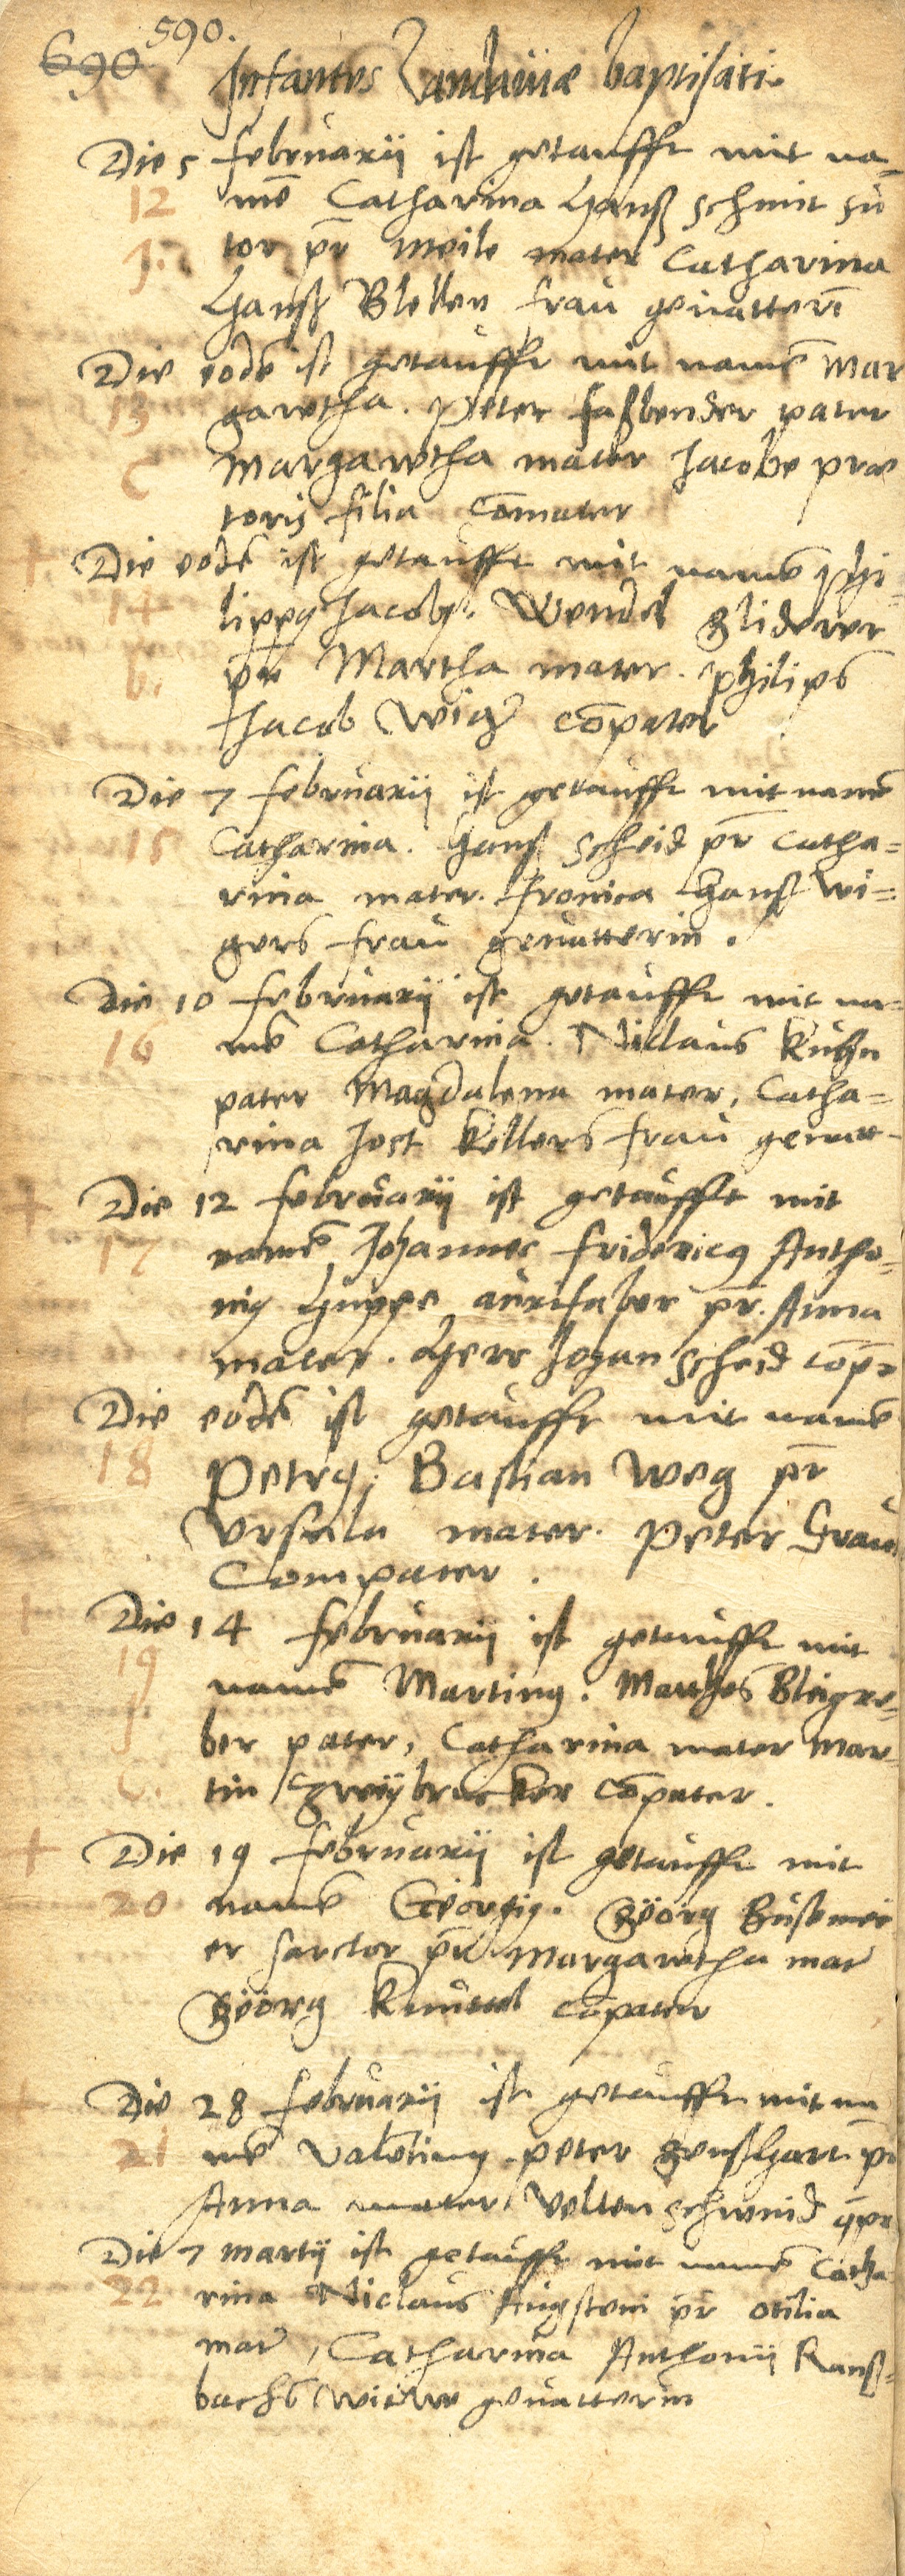 690 590.
Infantes Landauiae baptisati
Die 5 februarij ist getaufft mit na-
12 mē Catharina Hanß schmit su
j. tor pr̄ Meile mater Catharina
Hanß Blellen frau geuatterī
Die eodē ist getaufft mit namē Mar
13 garetha. Peter faßbender pater
C Margaretha mater Jacobe præ
toris filia Comater
+ Die eodē ist getaufft mit namē Phi-
14 lippq Jacobq. Wendel gliderer
b. pr̄ Martha mater. philips
Jacob Wig compater
Die 7 februarij ist getaufft mit namē
15 Catharina. Hanß scheid pr̄ Catha=
rina mater. fronica Hanß Wi=
gers frau geuatterin.
Die 10 februarij ist getaufft mit na-
16 mē Catharina. Niclaus Kuhn
pater Magdalena mater, Catha=
rina Jost Kellers frau geuatt-
+ Die 12 februarij ist getaufft mit
17 namē Johannes fridericq Antho-
nig aurifaber pr̄. Anna
mater. Herr Johan scheid compr̄
Die eodē ist getaufft mit namē
18 Petrq. Bastian Weg pr̄
Vrsula mater. Peter Grau
Compater.
+ Die 14 februarij ist getaufft mit
19 namē Martinq. Mathes Bleigre-
j ber pater, Catharina mater Mar-
C. tin Zweÿbrucker Compater.
+ Die 19 februarij ist getaufft mit
20 namē Georgiq. Georg Bußmei
er sartor pr̄ Margaretha mar̄
Georg Knuttel compater
+ Die 28 februarij ist getaufft mit na
21 mē Valētinq. peter genßhart pr̄
Anna mater Velten schmid
Die 7 martij ist getaufft mit namē Catha
22 rina Niclaus Augstein pr̄ otilia
mar̄, Catharina Anthonij Ranß-
bachs Witwe geuatterin